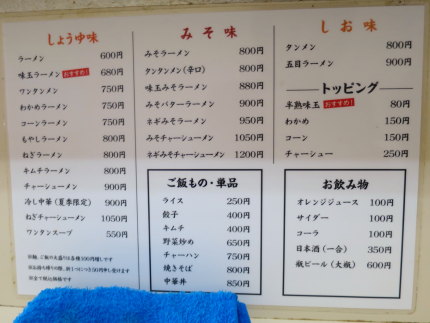 しょうゆ味
ラーメン 600円
味玉ラーメン おすすめ! 680円
ワンタンメン 750円
わかめラーメン 750円
コーンラーメン 750円
もやしラーメン 800円
ねぎラーメン 800円
キムチラーメン 800円
チャーシューメン 900円
冷し中華(夏季限定) 900円
ねぎチャーシューメン 1050円
ワンタンスープ 550円
※麺、ご飯の大盛りは各種100円増しです
※お持ち帰りの際、折1つにつき50円申し受けます
※全て税込価格です
みそ味
みそラーメン 800円
タンタンメン(辛口) 800円
味玉みそラーメン 880円
みそバターラーメン 900円
ネギみそラーメン 950円
みそチャーシューメン 1050円
ネギみそチャーシューメン 1200円
ご飯もの・単品
ライス 250円
餃子 400円
キムチ 400円
野菜炒め 650円
チャーハン 750円
焼きそば 800円
中華丼 850円
しお味
タンメン 800円
五目ラーメン 900円
トッピング
半熟味玉 おすすめ! 80円
わかめ 150円
コーン 150円
チャーシュー 250円
お飲み物
オレンジジュース 100円
サイダー 100円
コーラ 100円
日本酒(一合) 350円
瓶ビール(大瓶) 600円